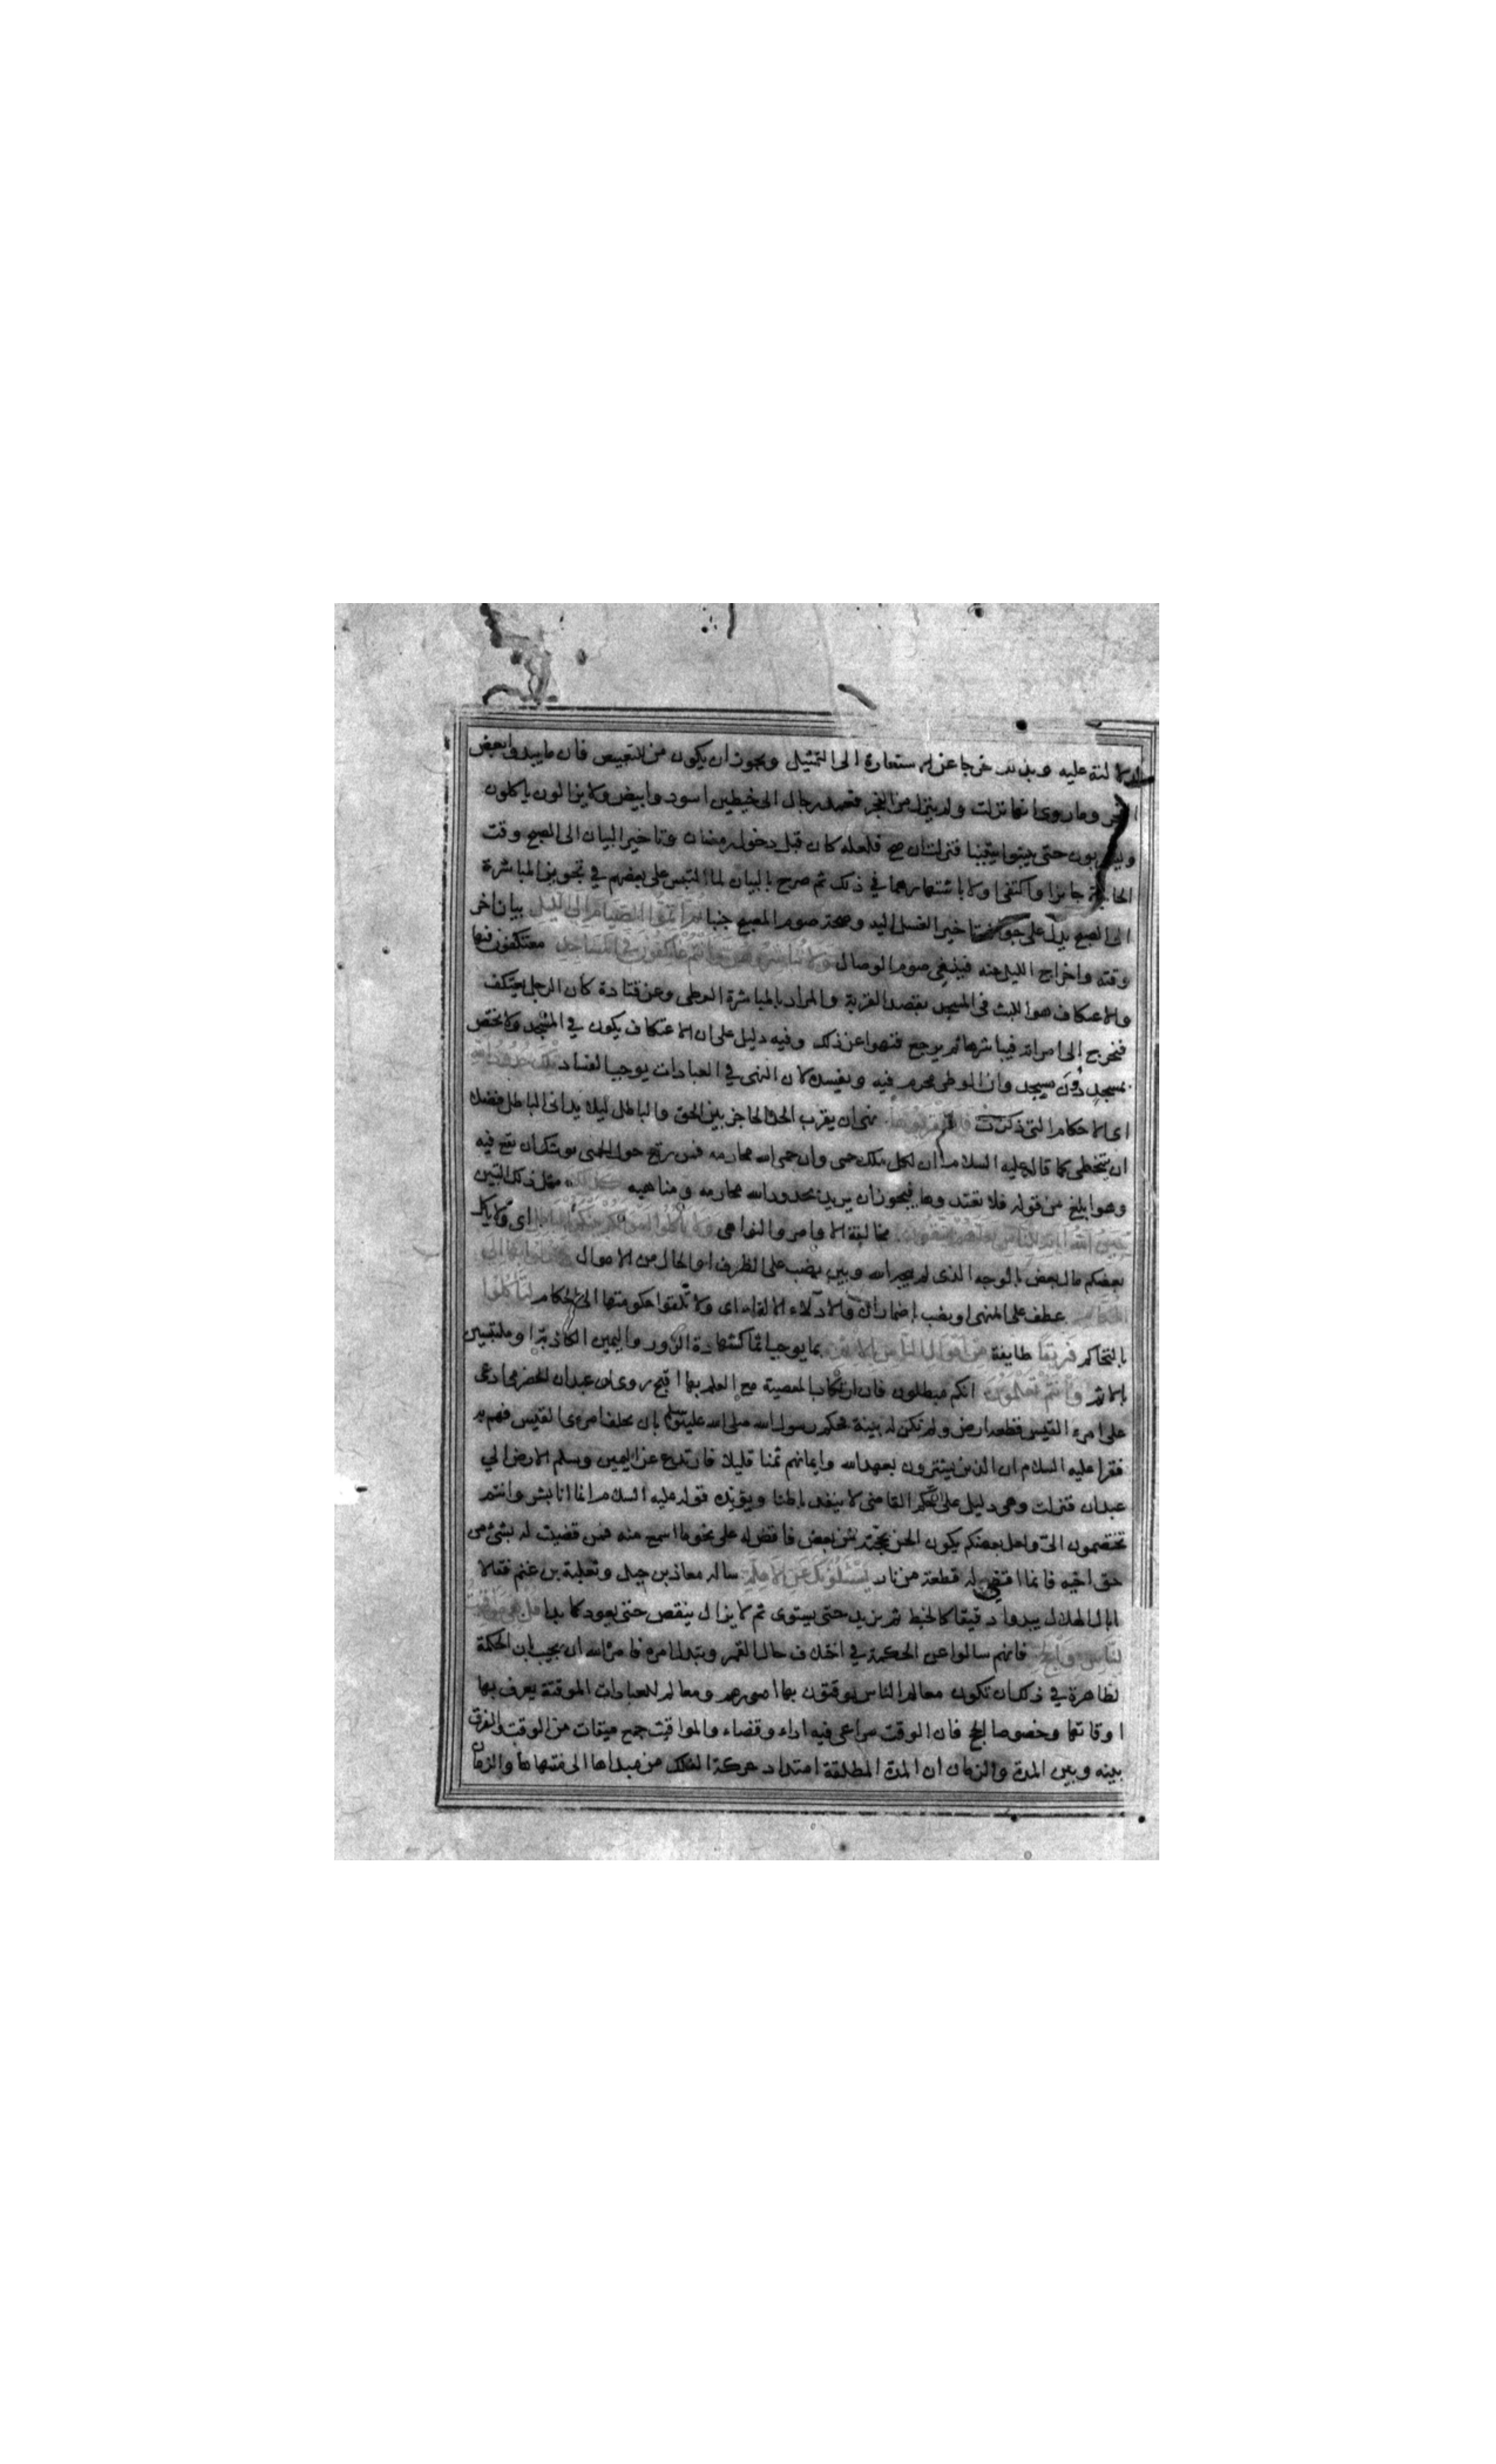 لدلالته عليه وبذلك خرجا عن الاستعارة الى التمثيل ويجوز ان يكون من للتبعيض فان ما يبدو بعض
الفجر وما روى انها نزلت ولم ينزل من الفجر فعمد رجال الى خيطين اسود وابيض ولا يزالون ياكلون
ويشربون حتى يتبينا فنزلت ان صح فلعله كان قبل دخول رمضان وتاخير البيان الى الصبح وقت
الحاجة جايز او اكتفى اولا باشتهارهما في ذلك ثم صرح بالبيان لما التبس على بعضهم في تجويز المباشرة
الى الصبح يدل على جواز تاخير الغسل اليه وصحة صوم المصبح جنبا ثم اتموا الصيام الى الليل بيان اخر
وقته واخراج الليل عنه فينفى صوم الوصال ولا تباشروهن وانتم عاكفون في المساجد معتكفون فيها
والاعتكاف هو اللبث في المسجد بقصد القربة والمراد بالمباشرة الوطى وعن قتادة كان الرجل يعتكف
فيخرج الى امراته فيباشرها ثم يرجع فنهوا عن ذلك وفيه دليل على ان الاعتكاف يكون في المسجد ولا يختص
بمسجد دون مسجد وان الوطى محرم فيه ويفسده لان النهى في العبادات يوجب الفساد تلك حدود الله
اى الاحكام التى ذكرت فلا تقربوها نهى ان يقرب الحد الحاجز بين الحق والباطل ليلا يدانى الباطل فضلا
ان يتخطى كما قال عليه السلام ان لكل ملك حمى وان حمى الله محارمه فمن رتع حول الحمى يوشك ان يقع فيه
وهو ابلغ من قوله فلا تعتدوها فيجوز ان يريد بحدود الله محارمه ومناهيه كذلك مثل ذلك التبيين
يبين الله اياته للناس لعلهم يتقون مخالفة الاوامر والنواهى ولا تاكلوا اموالكم بينكم بالباطل اى ولا ياكل
بعضكم مال بعض بالوجه الذى لم يبحه الله وبين نصب على الظرف او الحال من الاموال وتدلوا بها الى
الحكام عطف على المنهى او نصب باضمار ان والادلاء الالقاء اى ولا تلقوا حكومتها الى الحكام لتاكلوا
بالتحاكم فريقا طايفة من اموال الناس بالاثم بما يوجب اثما كشهادة الزور واليمين الكاذبة او ملتبسين
بالاثم وانتم تعلمون انكم مبطلون فان ارتكاب المعصية مع العلم بها اقبح روى ان عبدان الحضرمى ادعى
على امرء القيس قطعة ارض ولم تكن له بينة فحكم رسول الله صلى الله عليه وسلم بان يحلف امرئ القيس فهم به
فقرا عليه السلام ان الذين يشترون بعهد الله وايمانهم ثمنا قليلا فارتدع عن اليمين وسلم الارض الى
عبدان فنزلت وهى دليل على ان حكم القاضى لا ينفذ باطنا ويؤيده قوله عليه السلام انما انا بشر وانتم
تختصمون الى ولعل بعضكم يكون الحن بحجته من بعض فاقضى له على نحو ما اسمع منه فمن قضيت له بشئ من
حق اخيه فانما اقضى له قطعة من نار يسئلونك عن الاهلة ساله معاذ بن جبل وثعلبة بن غنم فقالا
ما بال الهلال يبدوا دقيقا كالخيط ثم يزيد حتى يستوى ثم لا يزال ينقص حتى يعود كما بدا قل هى مواقيت
للناس والحج فانهم سالوا عن الحكمة في اختلاف حال القمر وتبدل امره فامره الله ان يجيب بان الحكمة
الظاهرة في ذلك ان تكون معالم للناس يوقتون بها امورهم ومعالم للعبادات الموقتة يعرف بها
اوقاتها وخصوصا الحج فان الوقت مراعى فيه اداء وقضاء والمواقيت جمع ميقات من الوقت والفرق
بينه وبين المدة والزمان ان المدة المطلقة امتداد حركة الفلك من مبداها الى منتهاها والزمان